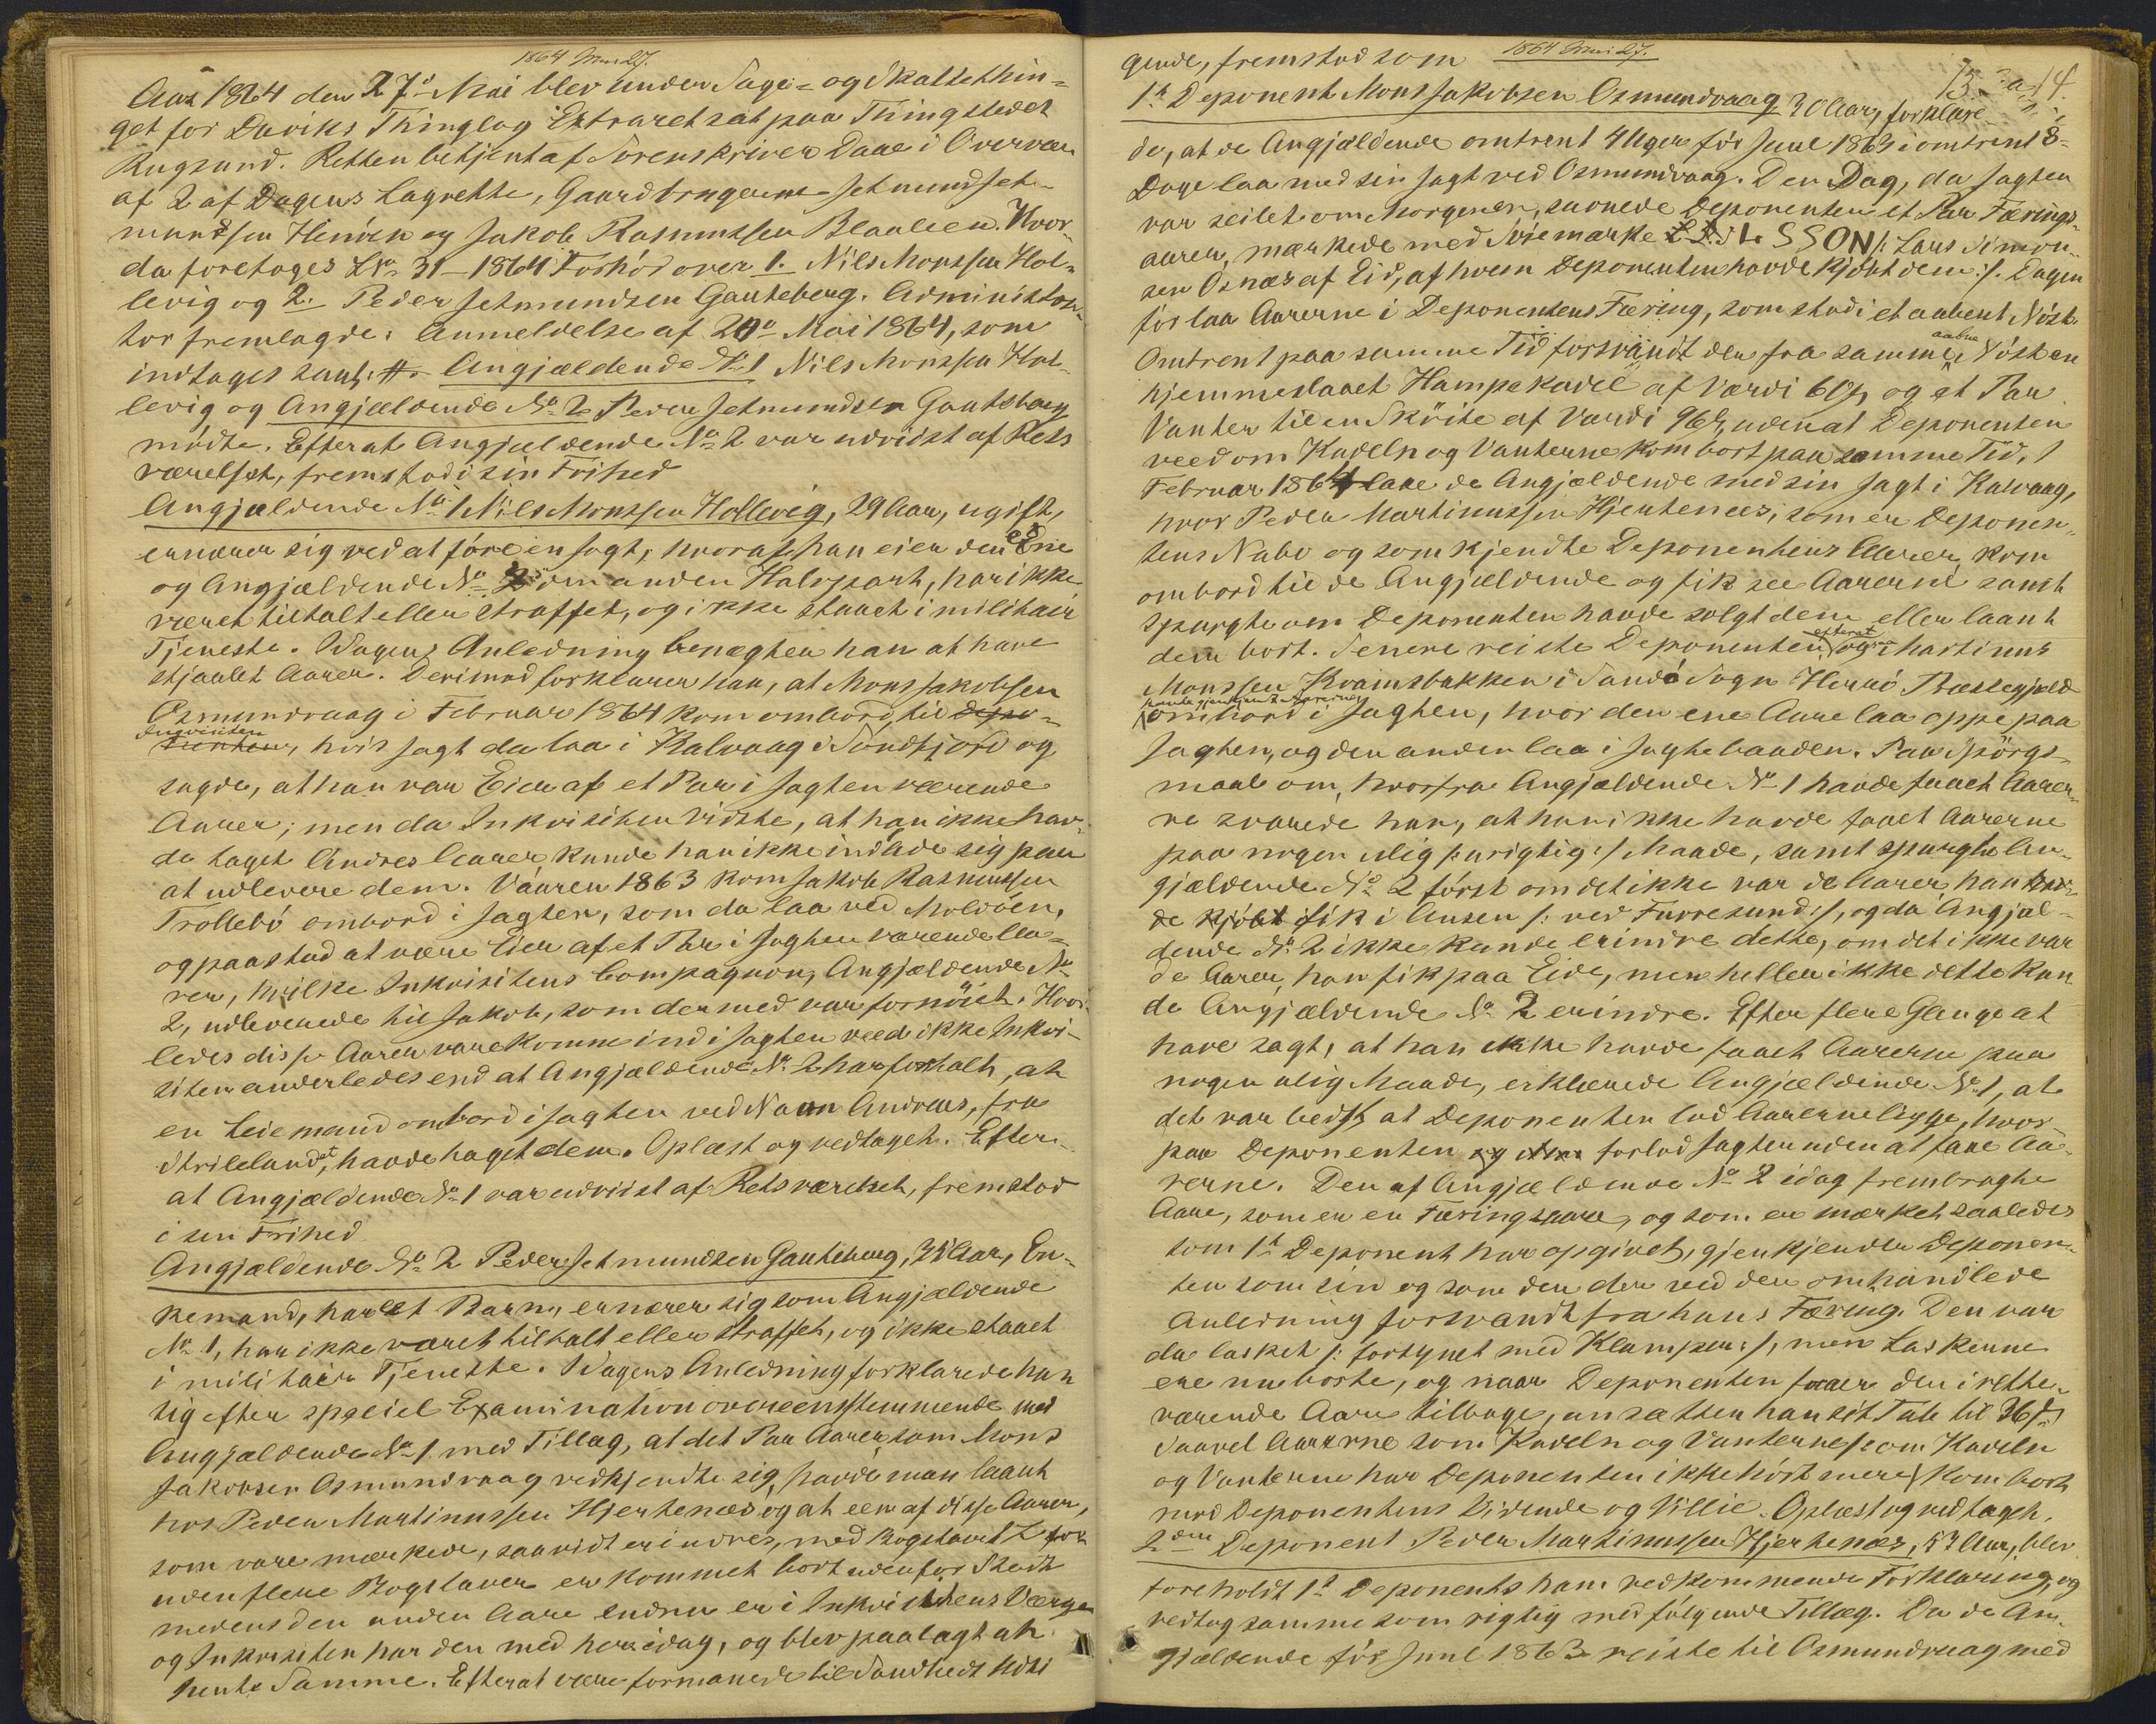 1864 Mai 27.
Aar 1864 den 27de Mai blev under Sage- og Skattethin-
get for Daviks Thinglag Extraret sat paa Thingstedet
Rugsund. Retten betjent af Sorenskriver Daae i Overvær
af 2 af Dagens Lagrette, Gaardbrugerne Jetmund Jet-
mundsen Henden og Jakob Rasmussen Blaalien. Hvor-
da foretoges No 31-1864 Forhör over 1. Nils Monssen Hol-
levig og 2. Peder Jetmundsen Gauteberg. Administra-
tor fremlagde: Anmeldelse af 20de Mai 1864, som
indtages saal: #. Angjældende No 1 Nils Monssen Hol-
levig og Angjældende No 2 Peder Jetmundsen Gauteberg
mödte. Efterat Angjældende No 2 var udviist af Rets
værelset, fremstod i sin Frihed
Angjældende No 1 Nils Monssen Hollevig, 29 Aar, ugift,
ernærer sig ved at före en Jagt, hvoraf han eier den ene
og Angjældende No 2 den anden Halvpart, har ikke
været tiltalt eller straffet, og ikke staaet i militair
Tjeneste. I Dagens Anledning benægter han at have
stjaalet Aarer. Derimod forklarer han, at Mons Jakobsen
Osmundvaag i Februar 1864 kom ombord til Depo-
Inqvisiten
nenten, hvis Jagt da laa i Kalvaag i Söndfjord og
sagde, at han var Eier af et Par i Jagten værende
Aarer; men da Inkvisiten vidste, at han ikke hav-
de taget Andres Aarer kunde han ikke indlade sig paa
at udlevere dem. Vaaren 1863 kom Jakob Rasmussen
Trollebö ombord i Jagten, som da laa ved Moldöen,
og paastod at være Eier af et Par i Jagten værende Aa-
rer, hvilke Inkvisitens Compagnon, Angjældende No
2, udleverede til Jakob, som dermed var fornöiet. Hvor-
ledes disse Aarer vare komne ind i Jagten veed ikke Inkvi-
siten anderledes end at Angjældende No 2 har fortalt, at
en Leiemand ombord i Jagten ved Navn Andreas, fra
Strilelandet, havde taget dem. Oplæst og vedtaget. Efter-
at Angjældende No 1 var udviist af Retsværelset, fremstod
i sin Frihed
Angjældende No 2 Peder Jetmundsen Gauteberg, 35 Aar, En-
kemand, har et Barn, ernærer sig som Angjældende
No 1, har ikke været tiltalt eller straffet, og ikke staaet
i militair Tjeneste. I Dagens Anledning forklarede han
sig efter speciel Examination overeenstemmende med
Angjældende No 1 med Tillæg, at det Par Aarer som Mons
Jakobsen Osmundvaag vedkjendte sig, havde man laant
hos Peder Martinussen Hjertenæs og at een af disse Aarer,
som vare mærkede, saavidt erindres, med Bogstavet L for-
uden flere Bogstaver er kommet bort udenfor Stadt
medens den anden Aare endnu er i Inkvisitens Værge
og Inkvisiten har den med her idag, og blev paalagt at
hente Samme. Efterat være formanede til Sandheds Udsi
1864 Mai 27.
gende, fremstod som
1ste Deponent Mons Jakobsen Osmundvaag 30 Aar, forklare-
de, at de Angjældende omtrent 4 Uger för Juul 1863 i omtrent 8-
Dage laa med sin Jagt ved Osmundvaag. Den Dag, da Jagten
var seilet om Morgenen, savnede Deponenten et Par Færings-
aarer, mærkede med Svimærke LSSON /: Lars Simon-
sen Osnæs af Eid, af hvem Deponenten havde kjöbt dem :/. Dagen
för laa Aarerne i Deponentens Færing, som stod i et aabent Nöst.
aabne
Omtrent paa samme Tid forsvandt der fra samme Nöst en
hjemmeslaaet Hampekadel af Værdi 60 ß og et Par
Vanter til en Sköite af Værdi 96 ß, uden at Deponenten
veed om Kadeln og Vanterne kom bort paa samme Tid. I
Februar 1864 laae de Angjældende med sin Jagt i Kalvaag,
hvor Peder Martinussen Hjertenæs, som er Deponen-
tens Nabo og som kjendte Deponentens Aarer, kom
ombord til de Angjældende og fik see Aarerne samt
spurgte om Deponenten havde solgt dem eller laant
efterat
dem bort. Senere reiste Deponenten og Martinus
Monssen Kramsbakken i Sandö Sogn Herrö Præstegjeld
ombord i Jagten, hvor den ene Aare laa oppe paa
Jagten, og den anden laa i Jagtebaaden. Paa Spörgs-
maal om, hvorfra Angjældende No 1 havde faaet Aarer-
ne svarede han, at han ikke havde faaet Aarerne
paa nogen ulig /: urigtig :/ Maade, samt spurgte An-
gjældende No 2 först om det ikke var de Aarer, han hav-
de kjöbt fik i Ausen /: ved Furresund :/, og da Angjæl-
dende No 2 ikke kunde erindre dette, om det ikke var
de Aarer, han fik paa Eide, men heller ikke dette kun
de Angjældende No 2 erindre. Efter flere Gange at
have sagt, at han ikke havde faaet Aarerne paa
nogen ulig Maade, erklærede Angjældende No 1, at
det var bedst at Deponenten lod Aarerne ligge, hvor-
paa Deponenten forlod Jagten uden at faae Aa-
rerne. Den af Angjældende No 2 idag frembragte
Aare, som er en Færingsaare, og som er mærket saaledes
som 1ste Deponent har opgivet, gjenkjender Deponen-
ten som sin og som den der ved den omhandlede
Anledning forsvandt fra hans Færing. Den var
da lasket /: forsynet med Klamper :/, men Laskerne
ere nu borte, og naar Deponenten faaer den i rette-
værende Aare tilbage, ansætter han sit Tab til 36 ß.
Saavel Aarerne som Kadeln og Vanterne /: om Kadeln
og Vanterne har Deponenten ikke hört mere :/ kom bort
mod Deponentens Vidende og Villie. Oplæst og vedtaget.
2den Deponent Peder Martinussen Hjertenæs, 53 Aar, blev
foreholdt 1ste Deponents ham vedkommende Forklaring, og
vedtog samme som rigtig med fölgende Tillæg. Da de An-
gjældende för Juul 1863 reiste til Osmundvaag med